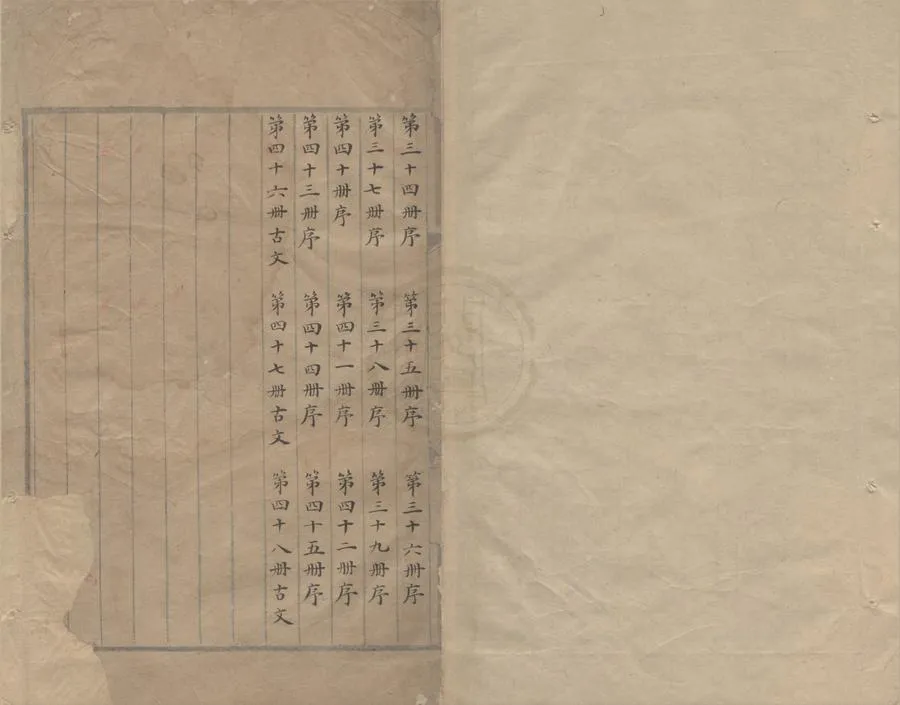 第三十四册序　第三十五册序　第三十六册序
第三十七册序　第三十八册序　第三十九册序
第四十册序　第四十一册序　第四十二册序
第四十三册序　第四十四册序　第四十五册序
第四十六册古文　第四十七册古文　第四十八册古文